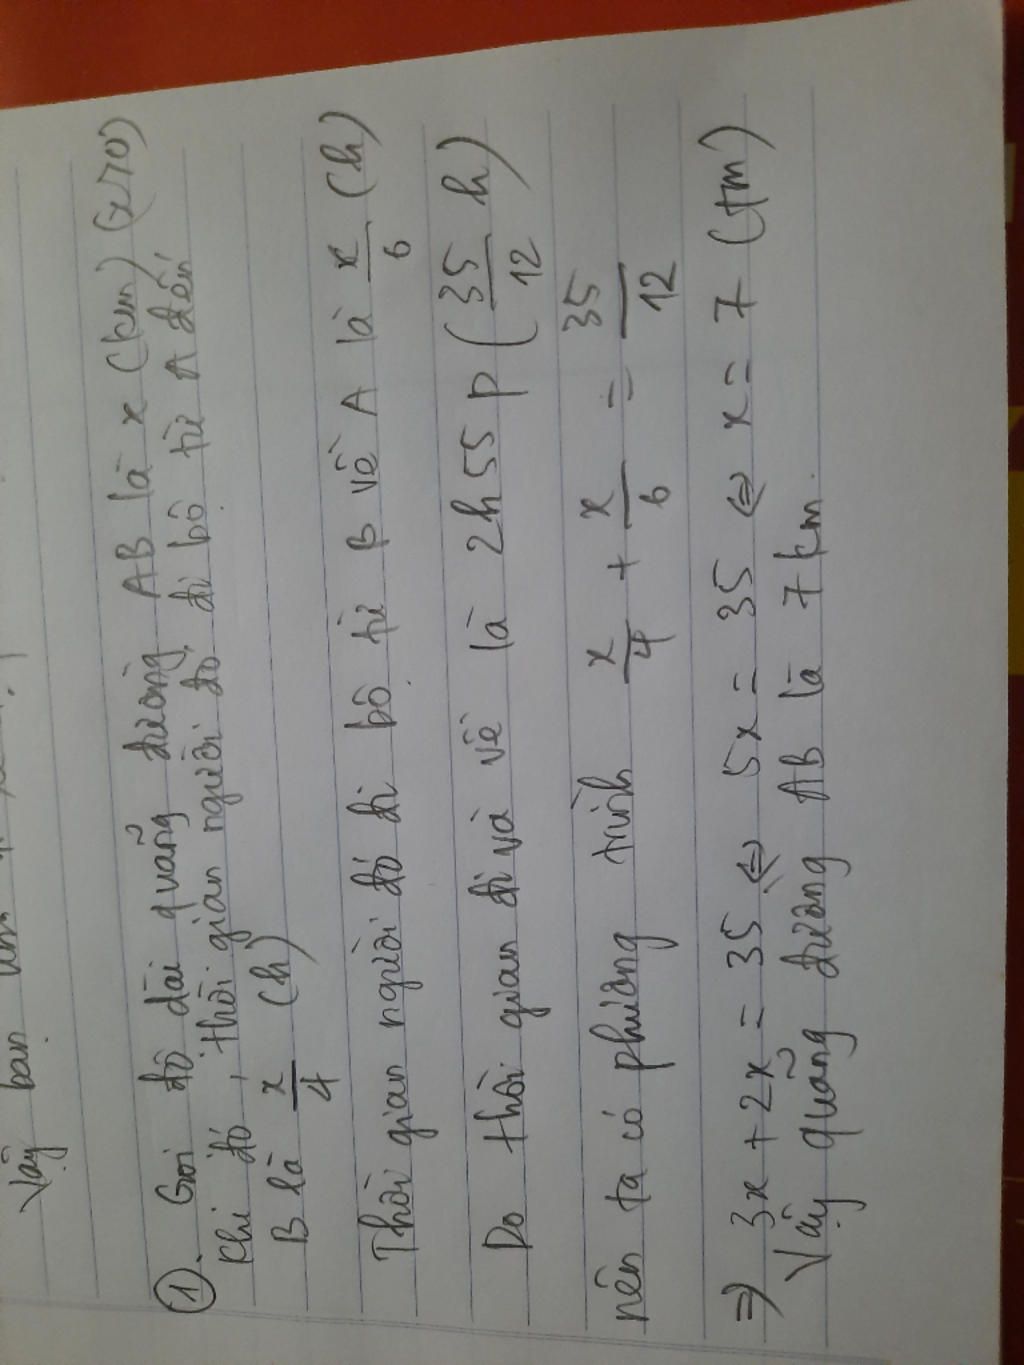 Vậy bạn
①. Gọi độ dài quãng đường AB là x (km) (x>0)
Khi đó, thời gian người đó đi bộ từ A đến
B là x/4 (h)
Thời gian người đó đi bộ từ B về A là x/6 (h)
Do thời gian đi và về là 2h55p (35/12 h)
nên ta có phương trình x/4 + x/6 = 35/12
⇒ 3x + 2x = 35 ⇔ 5x = 35 ⇔ x = 7 (tm)
Vậy quãng đường AB là 7 km.